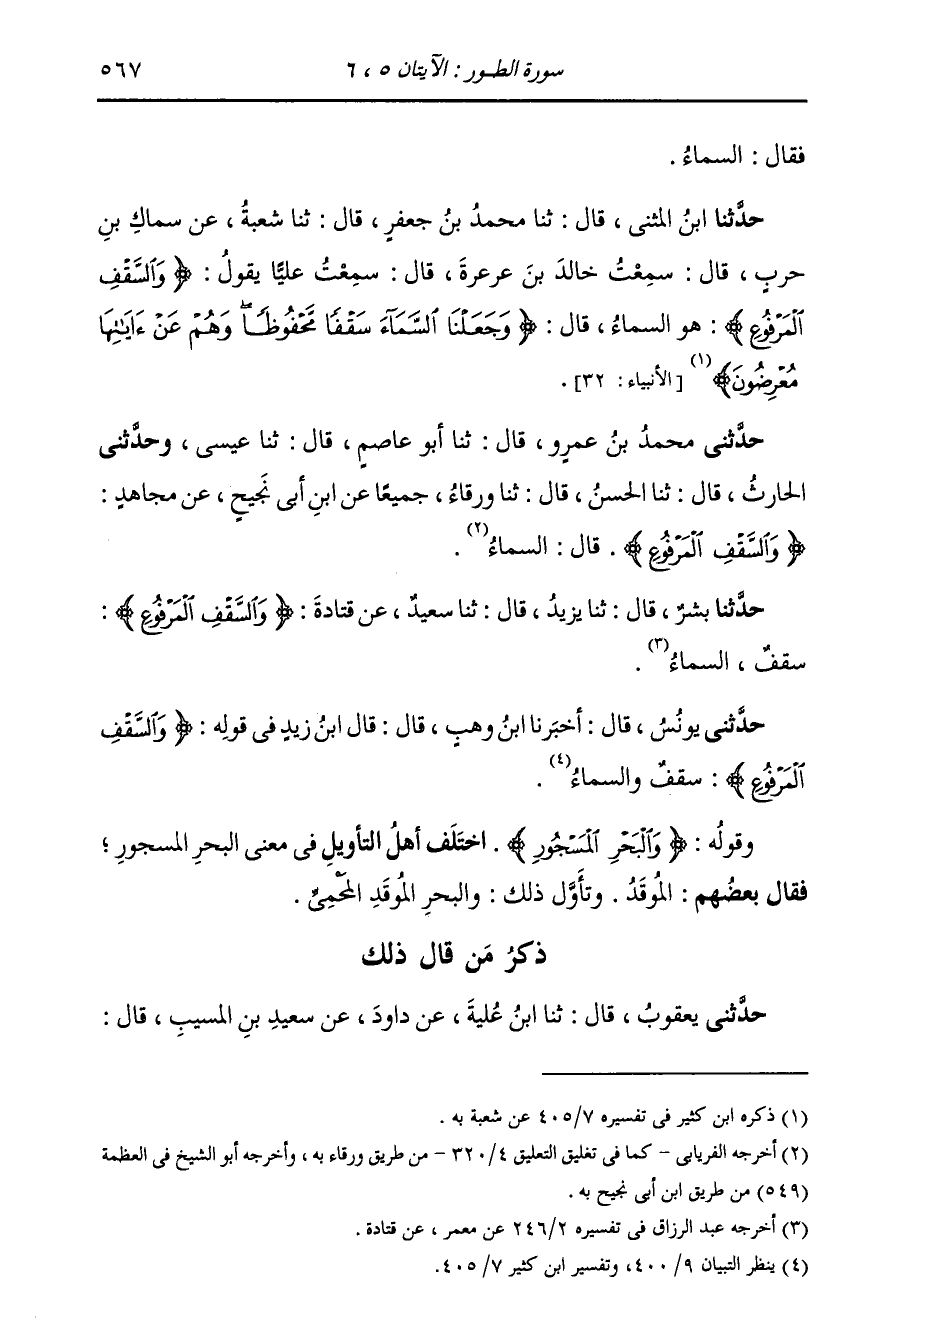 سورة الطور : الآيتان ٥ ، ٦ ٥٦٧
فقال : السماءُ .
حدَّثنا ابنُ المثنى ، قال : ثنا محمدُ بنُ جعفرٍ ، قال : ثنا شعبةُ ، عن سماكِ بنِ
حربٍ ، قال : سمِعْتُ خالدَ بنَ عرعرةَ ، قال : سمِعْتُ عليًّا يقولُ : ﴿ وَالسَّقْفِ
الْمَرْفُوعِ ﴾ : هو السماءُ ، قال : ﴿ وَجَعَلْنَا السَّمَآءَ سَقْفًا مَّحْفُوظًا ۖ وَهُمْ عَنْ ءَايَٰتِهَا
مُعْرِضُونَ ﴾(١) [الأنبياء: ٣٢] .
حدَّثنى محمدُ بنُ عمرٍو ، قال : ثنا أبو عاصمٍ ، قال : ثنا عيسى ، وحدَّثنى
الحارثُ ، قال : ثنا الحسنُ ، قال : ثنا ورقاءُ ، جميعًا عن ابنِ أبى نَجيحٍ ، عن مجاهدٍ :
﴿ وَالسَّقْفِ الْمَرْفُوعِ ﴾ . قال : السماءُ(٢) .
حدَّثنا بشرٌ ، قال : ثنا يزيدُ ، قال : ثنا سعيدٌ ، عن قتادةَ : ﴿ وَالسَّقْفِ الْمَرْفُوعِ ﴾ :
سقفٌ ، السماءُ(٣) .
حدَّثنى يونُسُ ، قال : أخبَرنا ابنُ وهبٍ ، قال : قال ابنُ زيدٍ فى قولِه : ﴿ وَالسَّقْفِ
الْمَرْفُوعِ ﴾ : سقفٌ والسماءُ(٤) .
وقولُه : ﴿ وَالْبَحْرِ الْمَسْجُورِ ﴾ . اختَلَف أهلُ التأويلِ فى معنى البحرِ المسجورِ ؛
فقال بعضُهم : المُوقَدُ . وتأوَّل ذلك : والبحرِ المُوقَدِ المَحْمِىِّ .
ذكرُ مَن قال ذلك
حدَّثنى يعقوبُ ، قال : ثنا ابنُ عُليةَ ، عن داودَ ، عن سعيدِ بنِ المسيبِ ، قال :
(١) ذكره ابن كثير فى تفسيره ٤٠٥/٧ عن شعبة به .
(٢) أخرجه الفريابى - كما فى تغليق التعليق ٣٢٠/٤ - من طريق ورقاء به ، وأخرجه أبو الشيخ فى العظمة
(٥٤٩) من طريق ابن أبى نجيح به .
(٣) أخرجه عبد الرزاق فى تفسيره ٢٤٦/٢ عن معمر ، عن قتادة .
(٤) ينظر التبيان ٤٠٠/٩، وتفسير ابن كثير ٤٠٥/٧.